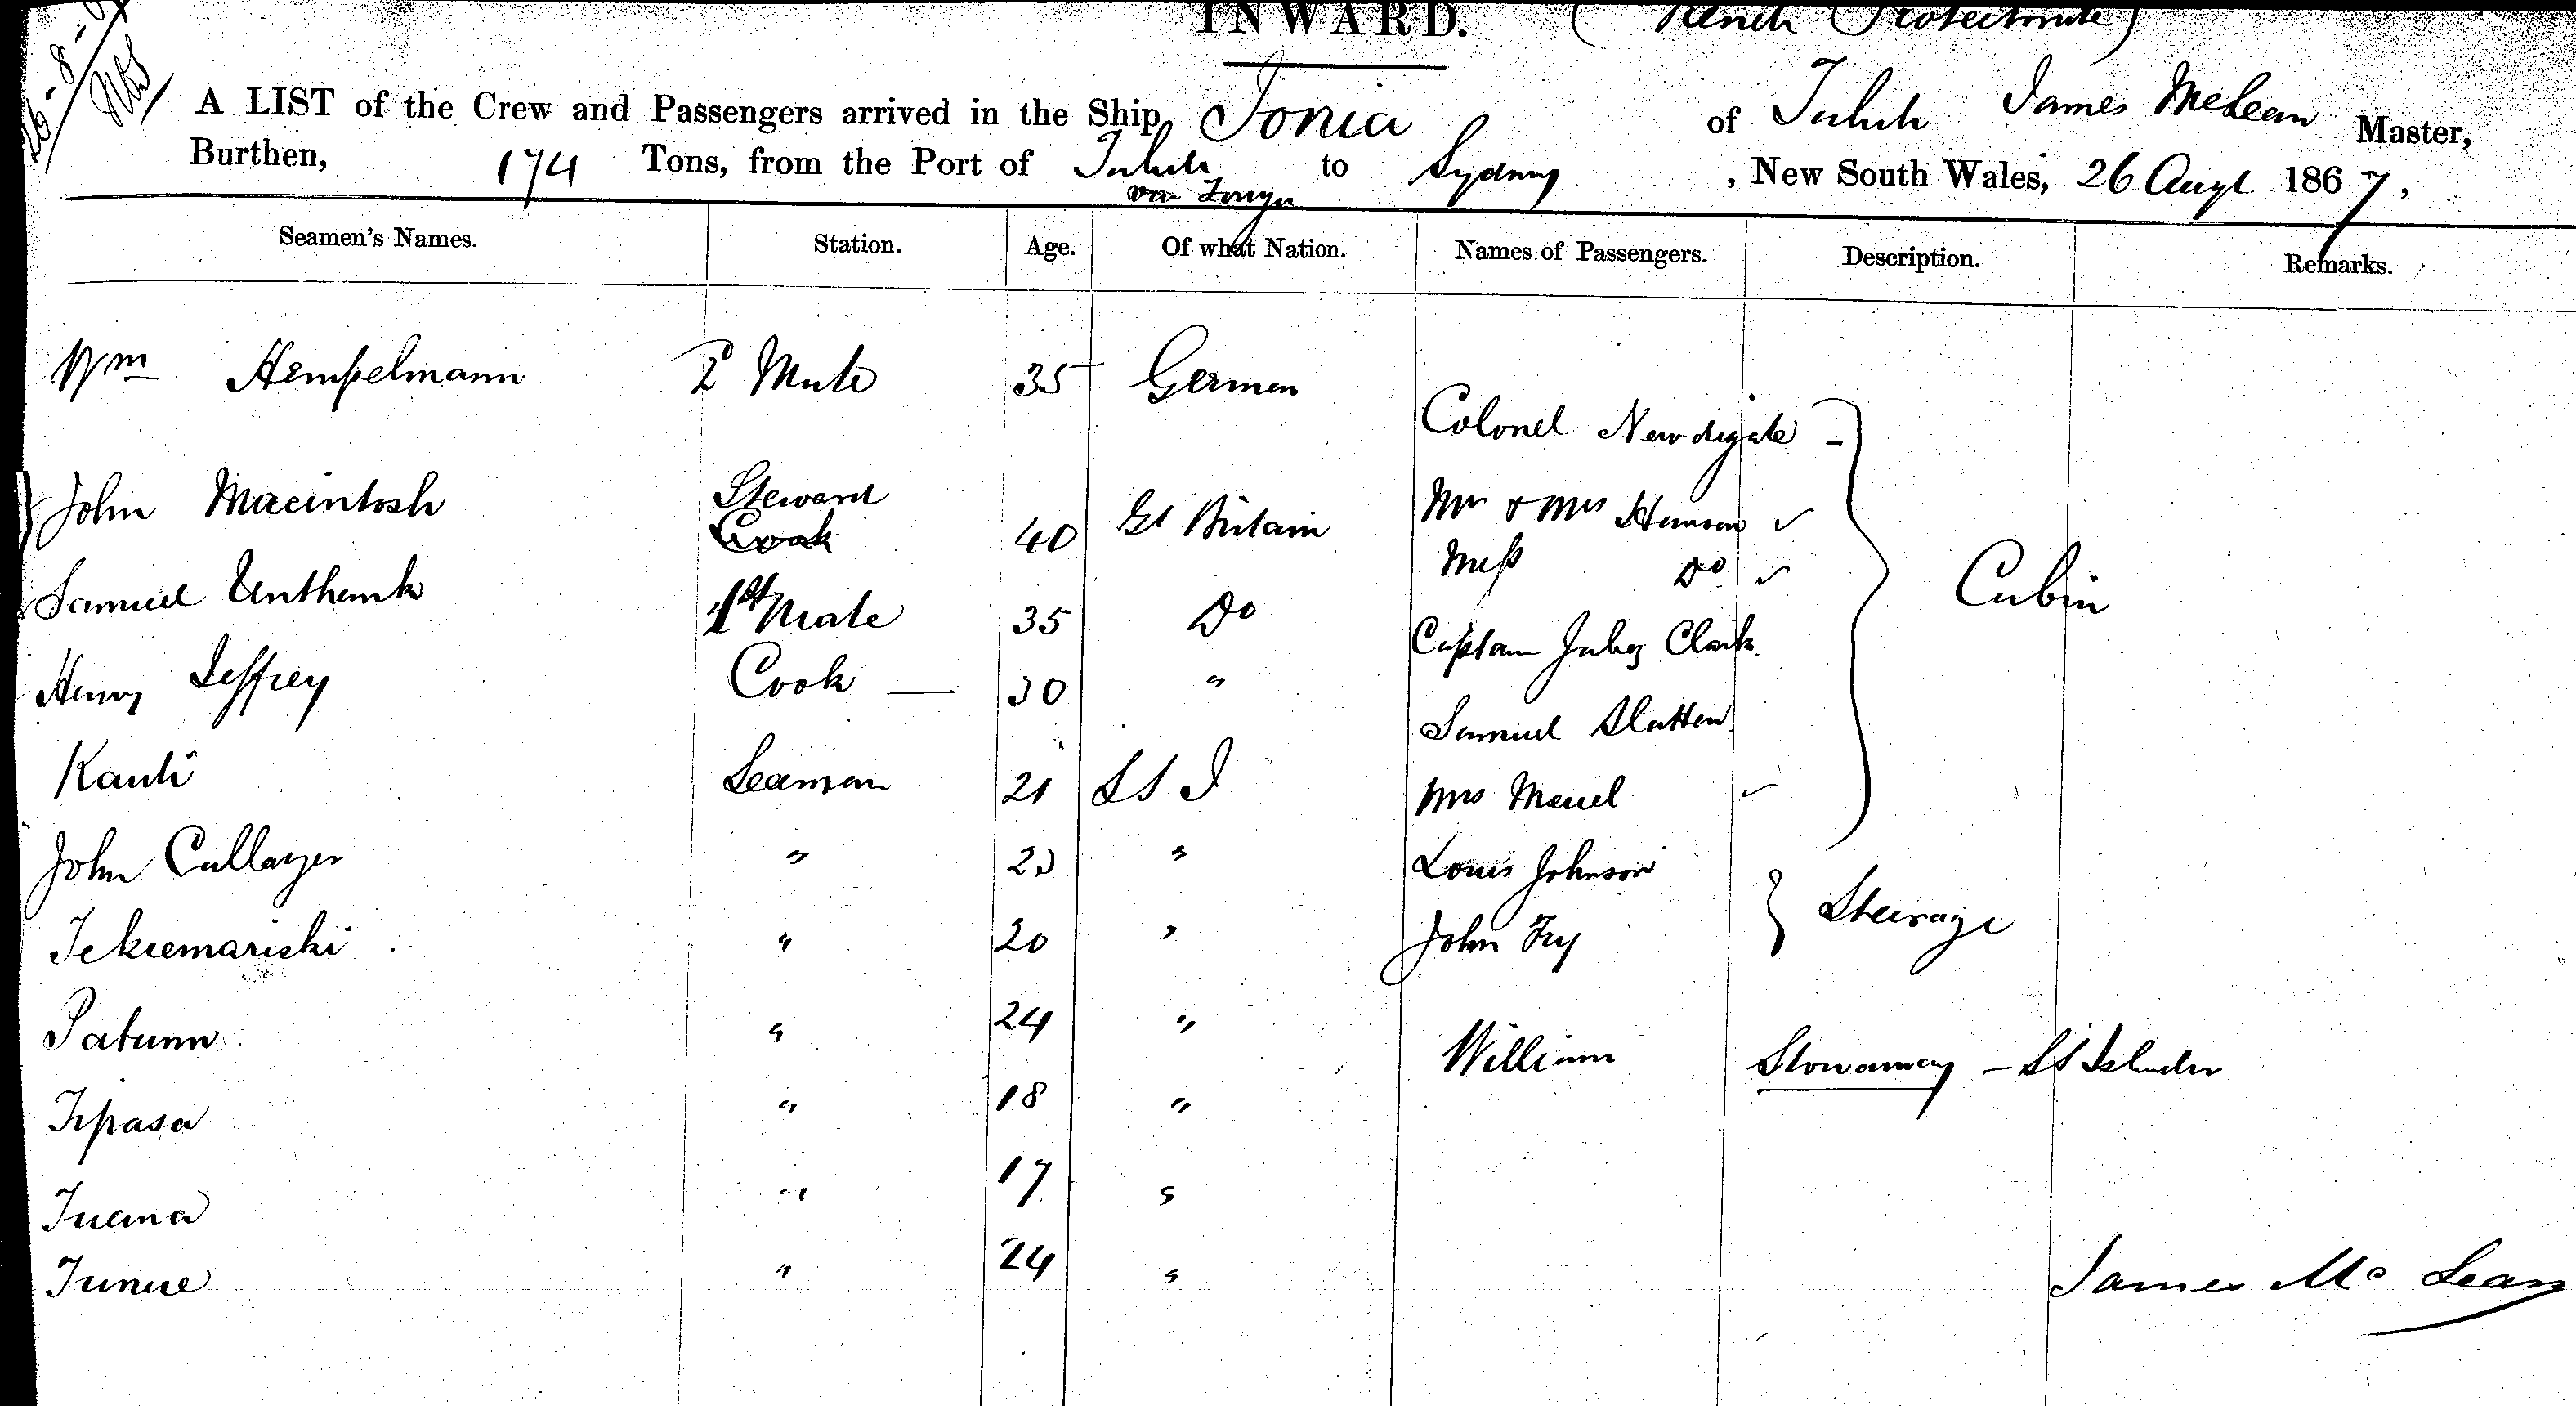 INWARD. (French Protectorate)
26-8-67
A LIST of the Crew and Passengers arrived in the Ship Ionia of Tahiti James McLean Master,
Burthen, 174 Tons, from the Port of Tahiti to Sydney, New South Wales, 26 Augt 1867,
via
Seamen's Names. Station. Age. Of what Nation. Names of Passengers. Description. Remarks.
Wm Hempelmann 2d Mate 35 German
Colonel Newdigate -
John Macintosh Steward Cook 40 Gt Britain Mr & Mrs ✓
Miss Do ✓ Cabin
Samuel Unthank 1st Mate 35 Do
Captain Jabez Clark
Henry Jeffrey Cook — 30 "
Samuel Slatten
Kauti Seaman 21 S S I Mrs ✓
John Callager " 23 " Louis Johnson
Steerage
Tekiemariki " 20 " John Fry
" 24 " William Stowaway - SS Islander
" 18 "
Tuana " 17 "
" 24 " James McLean